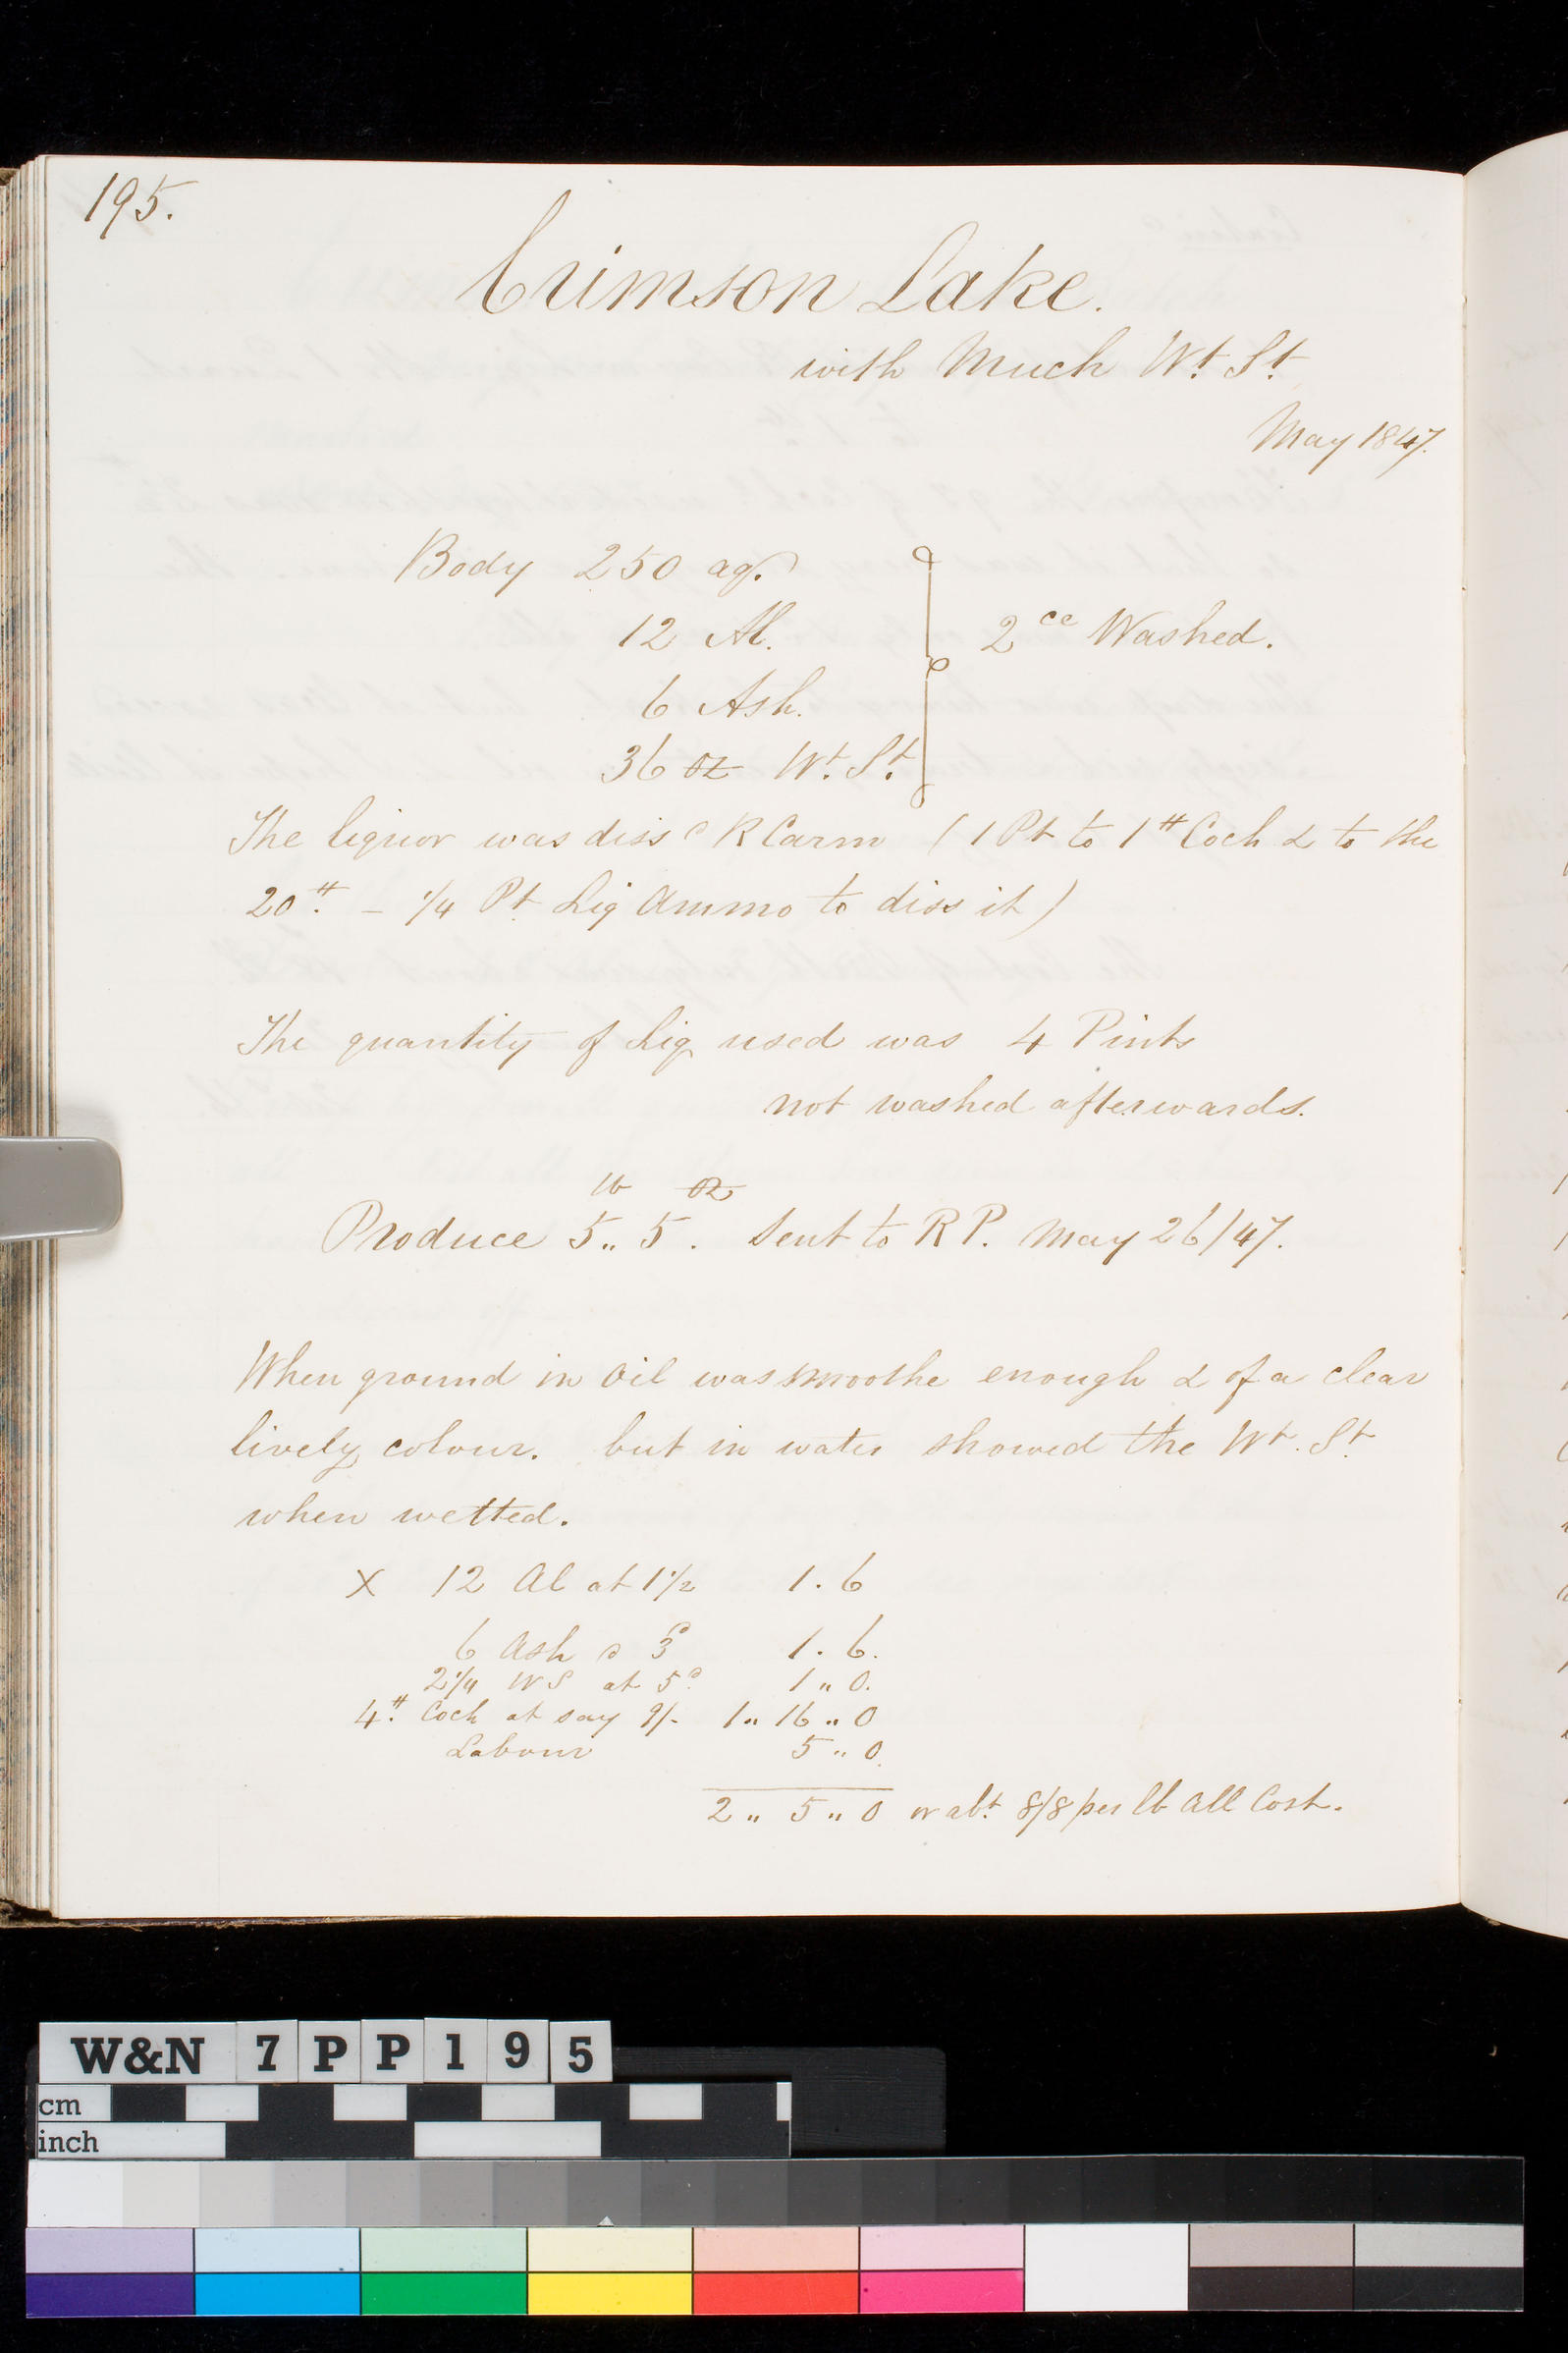 195.
Crimson Lake.
with Much Wt. St.
May 1847.
Body 250 aq.
12 Al.
6 Ash.
36 oz Wt. St.
2ce Washed.
The liquor was diss d R Carm (1 Pt to 1 # Coch & to the
20 #. - 1/4 Pt Liq Ammo to diss it)
The quantity of Liq used was 4 Pints
not washed afterwards.
lb oz
Produce 5 ,, 5. Sent to R P. May 26/47.
When ground in Oil was smoothe enough & of a clear
lively colour. but in water showed the Wt. St.
when wetted.
X 12 Al at 1 1/2 1. 6
6 Ash @ 3d 1. 6.
2 1/4 W S at 5d. 1 ,, 0.
4 #. Coch at say 9/- 1 ,, 16 ,, 0
Labour 5 ,, 0.
2 ,, 5 ,, 0 or abt. 8/8 per lb all Cost.
W&N 7PP195
cm
inch